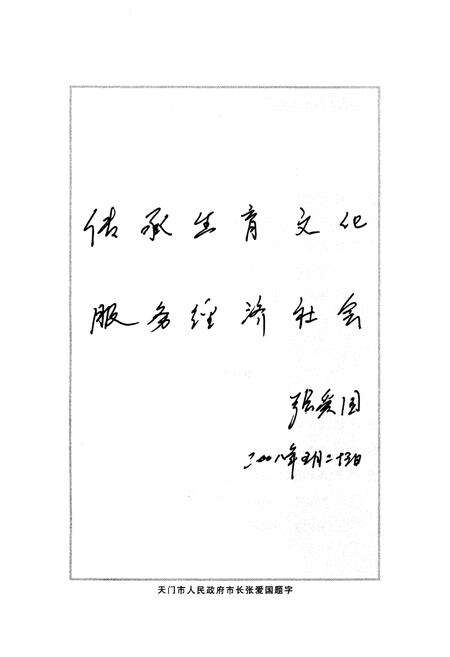 传承生育文化
服务经济社会
张爱国
二〇〇八年五月二十五日
天门市人民政府市长张爱国题字